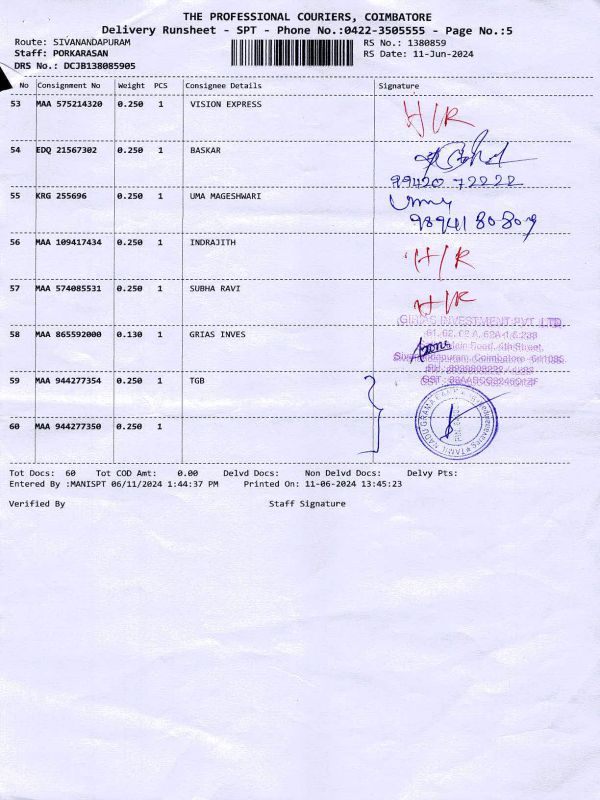 THE PROFESSIONAL COURIERS, COIMBATORE
Delivery Runsheet - SPT - Phone No.:0422-3505555 - Page No.:5
Route: SIVANANDAPURAM RS No.: 1380859
Staff: PORKARASAN RS Date: 11-Jun-2024
DRS No.: DCJB138085905
No Consignment No Weight PCS Consignee Details Signature
53 MAA 575214320 0.250 1 VISION EXPRESS H/R
54 EDQ 21567302 0.250 1 BASKAR
99420 72222
55 KRG 255696 0.250 1 UMA MAGESHWARI Umy
98941 80809
56 MAA 109417434 0.250 1 INDRAJITH H/R
57 MAA 574085531 0.250 1 SUBHA RAVI H/R
GIRIAS INVESTMENT PVT. LTD.
58 MAA 865592000 0.130 1 GRIAS INVES
4th Street,
Coimbatore
59 MAA 944277354 0.250 1 TGB
TAMIL NADU GRAMA BANK
60 MAA 944277350 0.250 1
Tot Docs: 60 Tot COD Amt: 0.00 Delvd Docs: Non Delvd Docs: Delvy Pts:
Entered By :MANISPT 06/11/2024 1:44:37 PM Printed On: 11-06-2024 13:45:23
Verified By Staff Signature